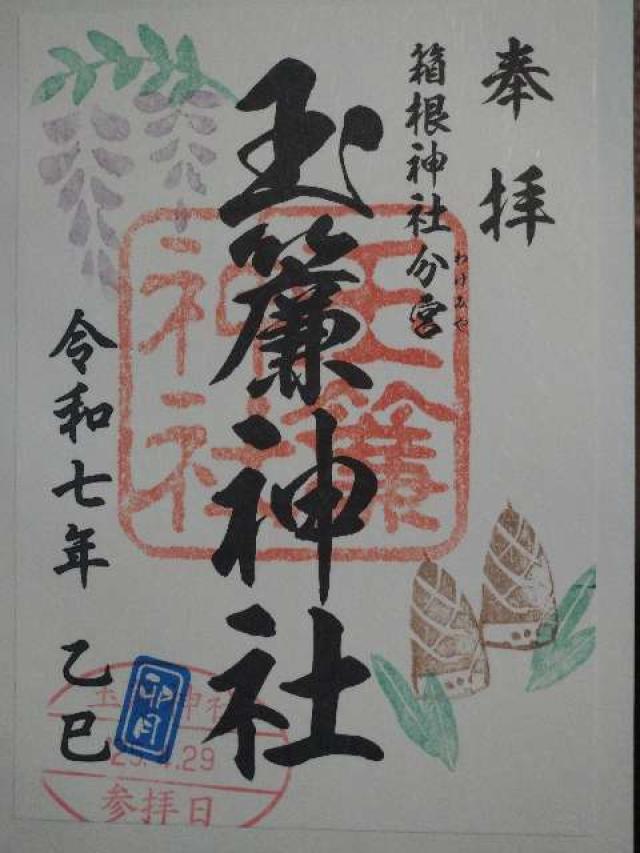 奉拝
箱根神社分宮
わけみや
玉簾神社
玉簾神社
令和七年 乙巳
卯月
参拝日